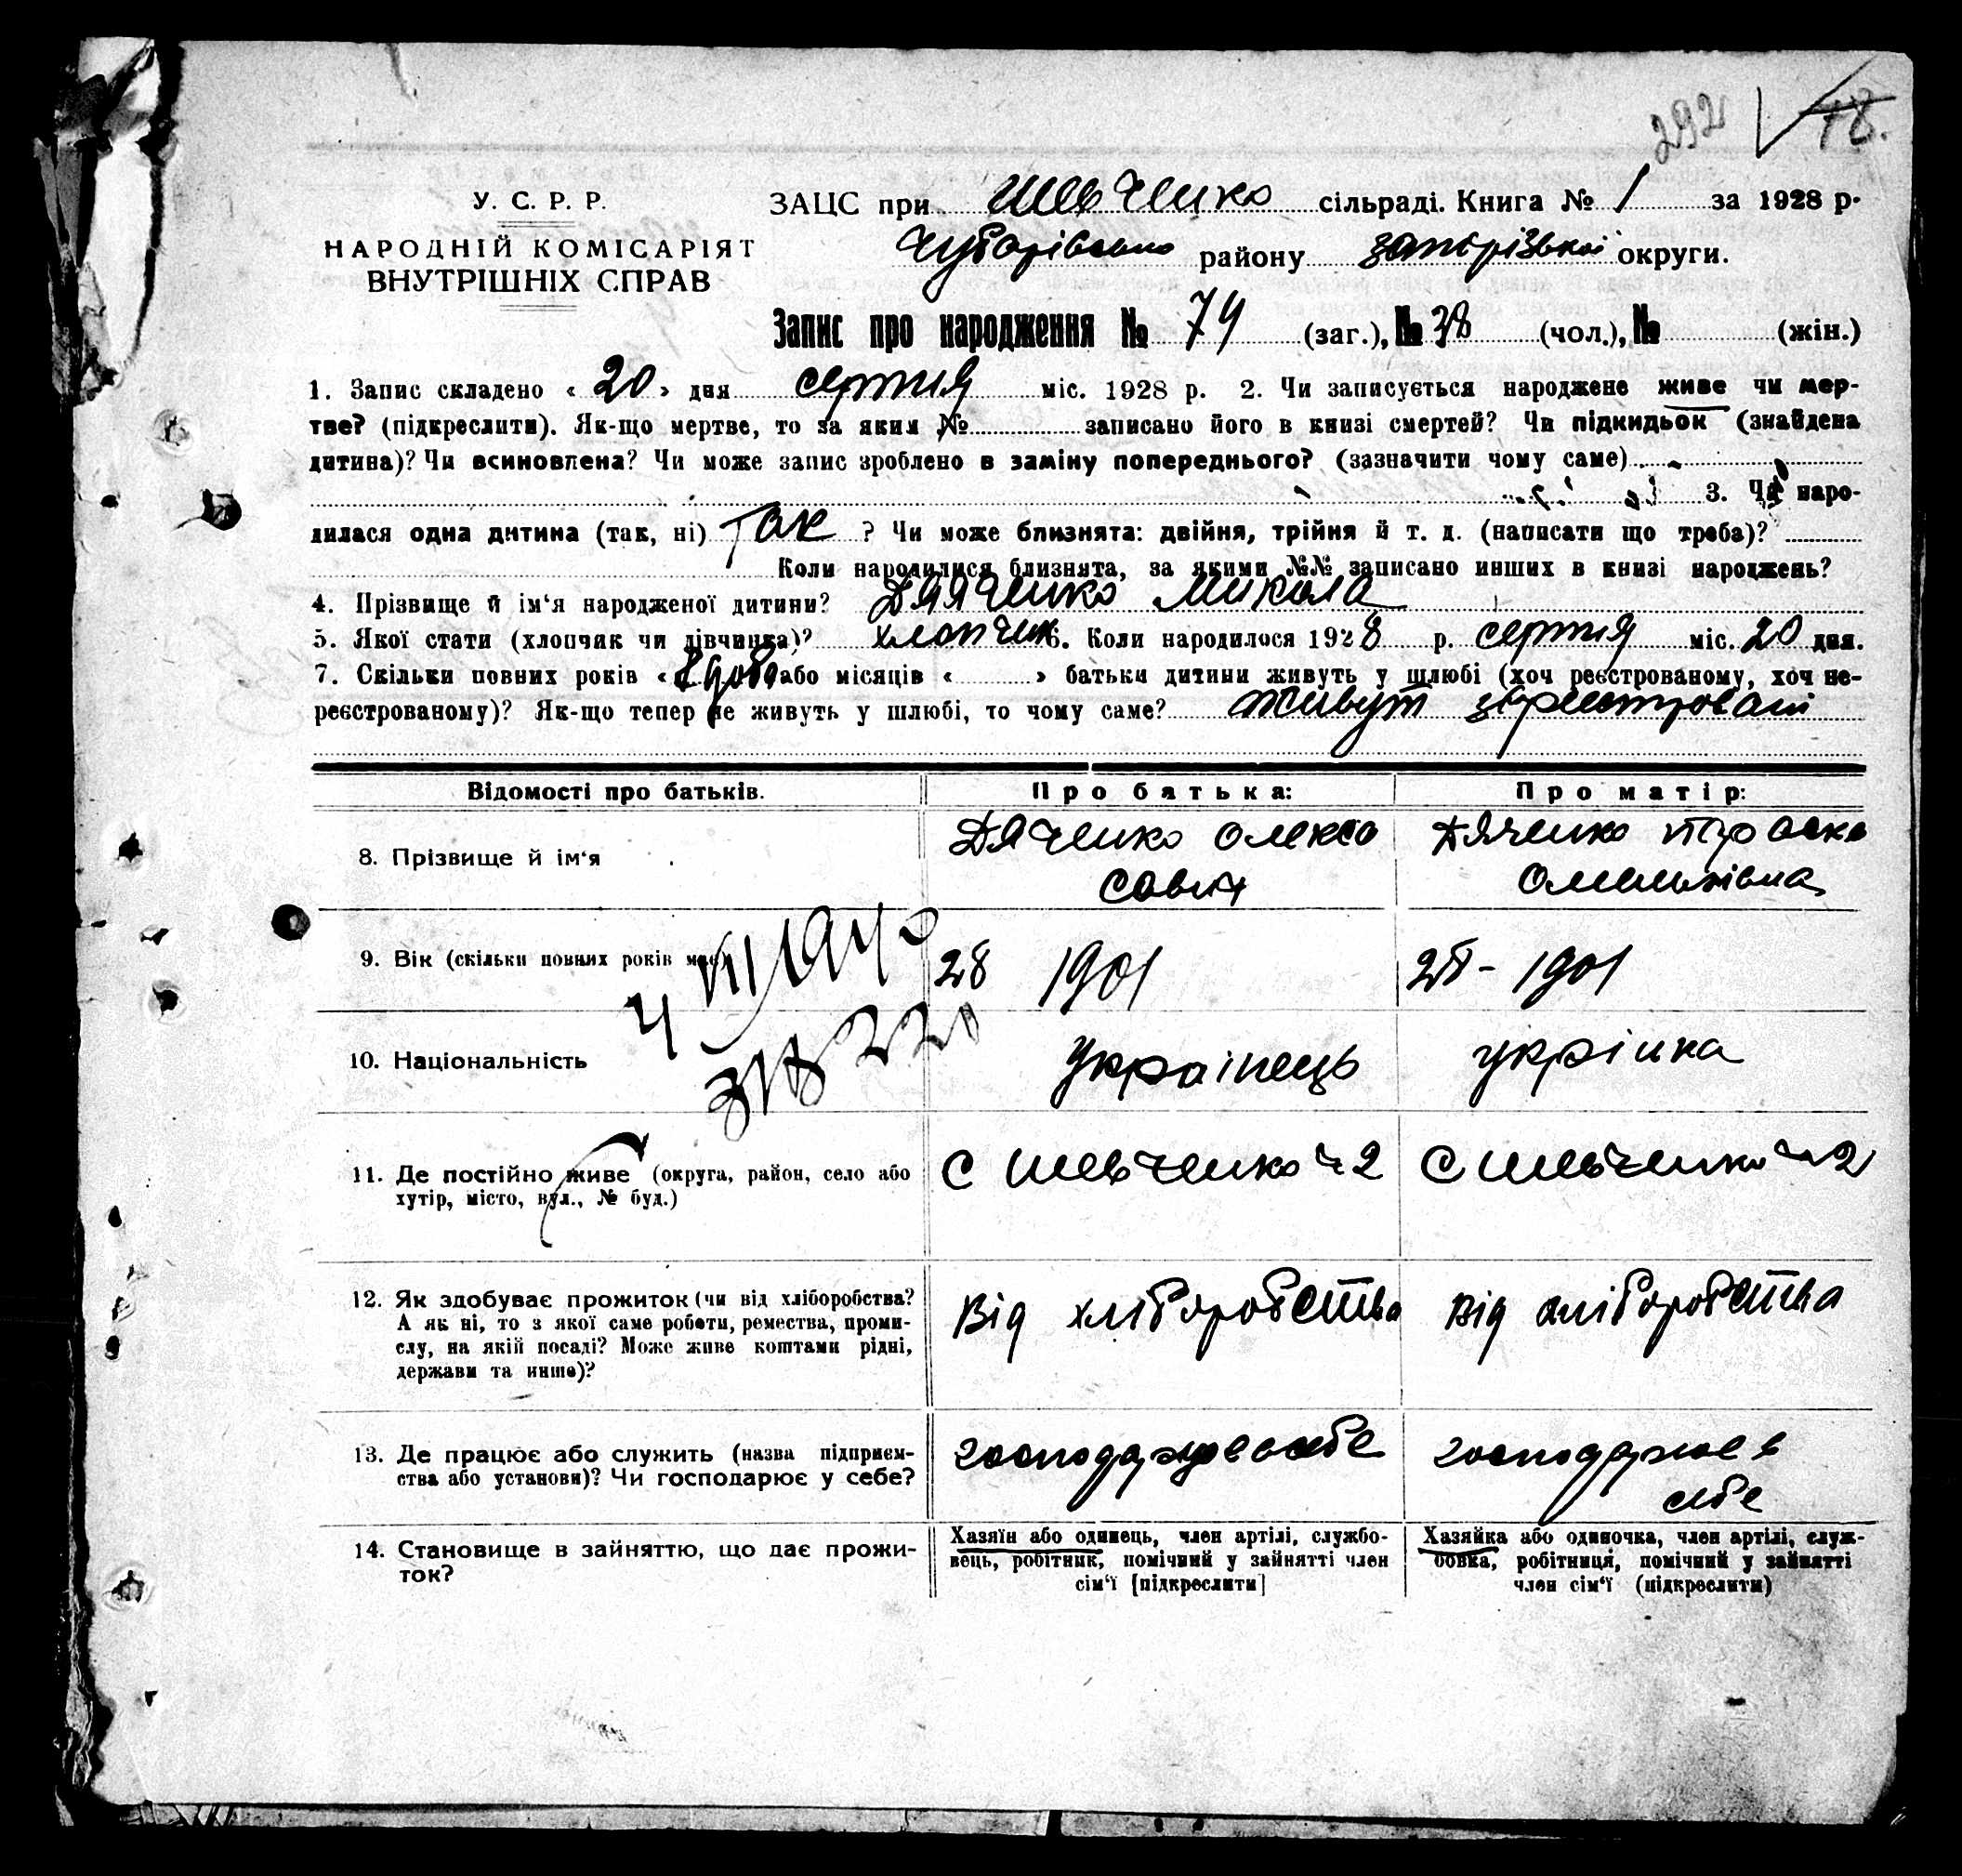 292 18.
У. С. Р. Р.
НАРОДНІЙ КОМІСАРІЯТ
ВНУТРІШНІХ СПРАВ
ЗАЦС при Шевченко сільраді. Книга № 1 за 1928 р.
Чубарівсько району запорізької округи.
Запис про народження № 74 (заг.), № 38 (чол.), № (жін.)
1. Запис складено « 20 » дня серпня міс. 1928 р. 2. Чи записується народжене живе чи мер-
тве? (підкреслити). Як-що мертве, то за яким № записано його в книзі смертей? Чи підкидьок (знайдена
дитина)? Чи всиновлена? Чи може запис зроблено в заміну попереднього? (зазначити чому саме)
3. Чи наро-
дилася одна дитина (так, ні) Так ? Чи може близнята: двійня, трійня й т. д. (написати що треба)?
Коли народилися близнята, за якими №№ записано инших в книзі народжень?
4. Прізвище й ім'я народженої дитини? Дяяченко Микола
5. Якої стати (хлопчик чи дівчинка)? хлопчик 6. Коли народилося 1928 р. серпня міс. 20 дня.
7. Скільки повних років « або місяців « » батьки дитини живуть у шлюбі (хоч реєстрованому, хоч не-
реєстрованому)? Як-що тепер не живуть у шлюбі, то чому саме? живут зареєстровані
Відомості про батьків. Про батька: Про матір:
8. Прізвище й ім'я Дяченко Олекса Дяченко Параска
Савич Омельківна
9. Вік (скільки повних років має) 28 1901 28 - 1901
10. Національність Украінець укрінка
11. Де постійно живе (округа, район, село або С Шевченко ч 2 С Шевченко ч 2
хутір, місто, вул., № буд.)
12. Як здобуває прожиток (чи від хліборобства? Від хліборобства Від хліборобства
А як ні, то з якої саме роботи, ремества, проми-
слу, на якій посаді? Може живе коштами рідні,
держави та инше)?
13. Де працює або служить (назва підприєм- господарює в себе господарює в
ства або установи)? Чи господарює у себе? себе
14. Становище в зайняттю, що дає прожи- Хазяїн або одинець, член артілі, службо- Хазяйка або одиночка, член артілі, служ-
ток? вець, робітник, помічний у зайнятті член бовка, робітниця, помічний у зайнятті
сім'ї [підкреслити] член сім'ї (підкреслити)